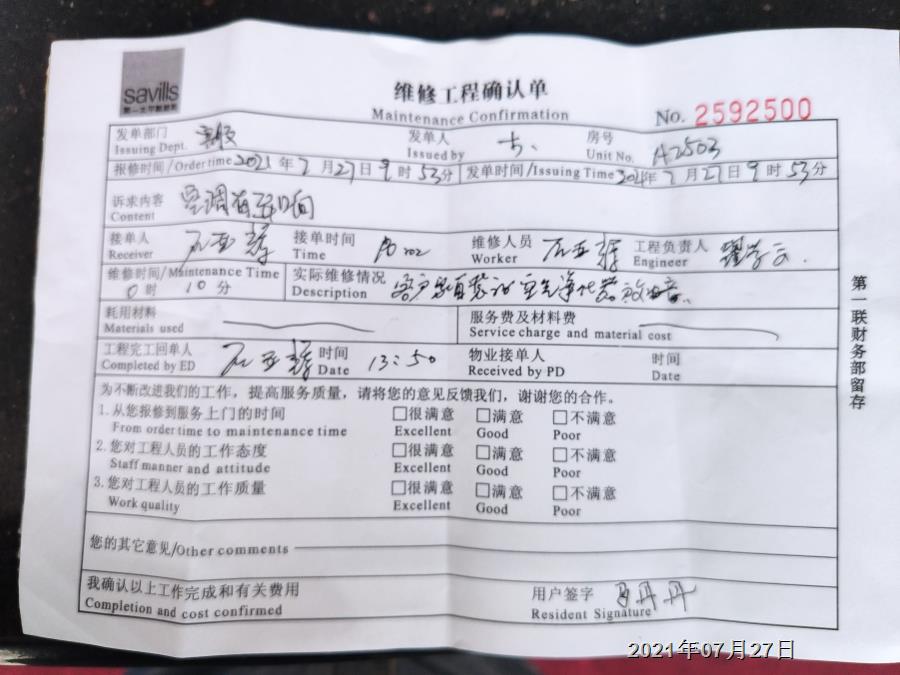 savills
第一太平戴维斯
维修工程确认单
Maintenance Confirmation
No. 2592500
发单部门 客服 发单人 房号 A2503
Issuing Dept. Issued by Unit No.
报修时间/Order time 2021年7月27日9时53分 发单时间/Issuing Time 2021年7月27日9时53分
诉求内容 空调有异响
Content
接单人 接单时间 维修人员 工程负责人
Receiver Time Worker Engineer
维修时间/Maintenance Time 实际维修情况
0时10分 Description 客户家自装的空气净化器
耗用材料 服务费及材料费
Materials used Service charge and material cost
工程完工回单人 时间 13:50 物业接单人 时间
Completed by ED Date Received by PD Date
为不断改进我们的工作，提高服务质量，请将您的意见反馈我们，谢谢您的合作。
1.从您报修到服务上门的时间 □很满意 □满意 □不满意
From order time to maintenance time Excellent Good Poor
2.您对工程人员的工作态度 □很满意 □满意 □不满意
Staff manner and attitude Excellent Good Poor
3.您对工程人员的工作质量 □很满意 □满意 □不满意
Work quality Excellent Good Poor
您的其它意见/Other comments
我确认以上工作完成和有关费用 用户签字 丹丹
Completion and cost confirmed Resident Signature
第一联财务部留存
2021年07月27日